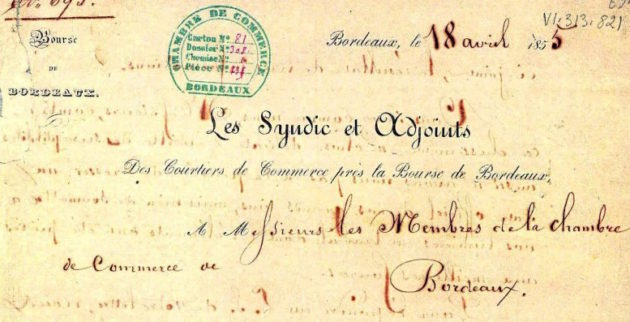 No. 695.
VI-313-821
Bourse
DE
BORDEAUX.
CHAMBRE DE COMMERCE
Carton No. 21
Dossier No.
Chemise No.
Pièce No.
BORDEAUX
Bordeaux, le 18 avril 1855
Les Syndic et Adjoints
Des Courtiers de Commerce près la Bourse de Bordeaux,
A Messieurs les Membres de la chambre
de Commerce de
Bordeaux.